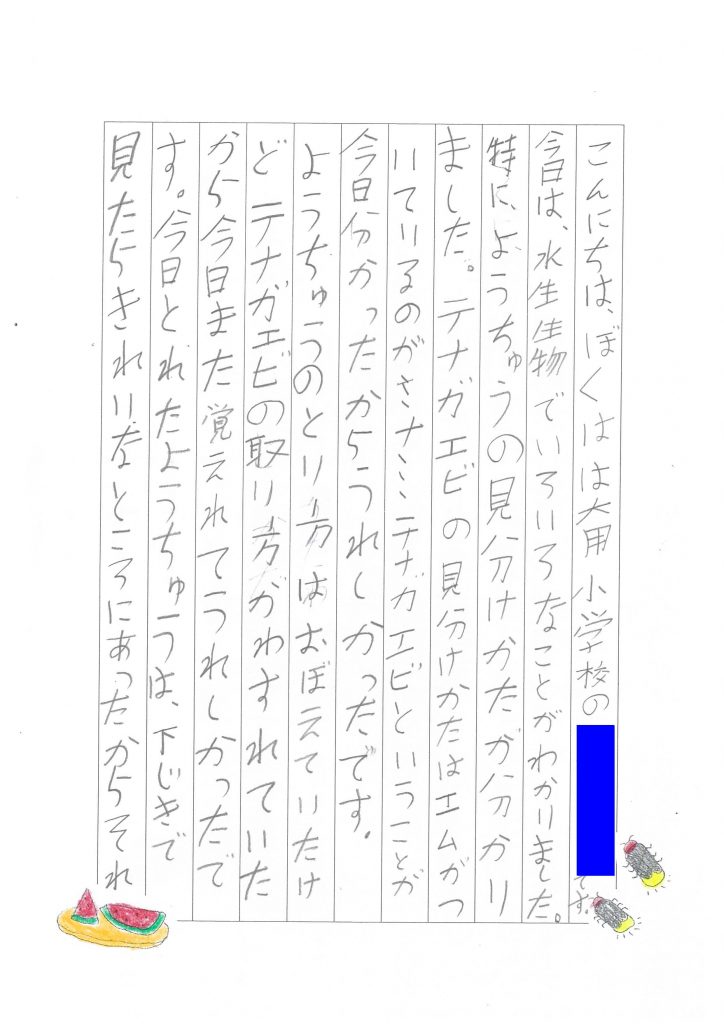 こんにちは、ぼくはは大用小学校の
です。
今日は、水生生物でいろいろなことがわかりました。
特に、ようちゅうの見分けかたが分かり
ました。テナガエビの見分けかたはエムがつ
いているのがさナミミテナガエビということが
今日分かったからうれしかったです。
ようちゅうのとり方はおぼえていたけ
どテナガエビの取り方がわすれていた
から今日また覚えれてうれしかったで
す。今日とれたようちゅうは、下じきで
見たらきれいなところにあったからそれ